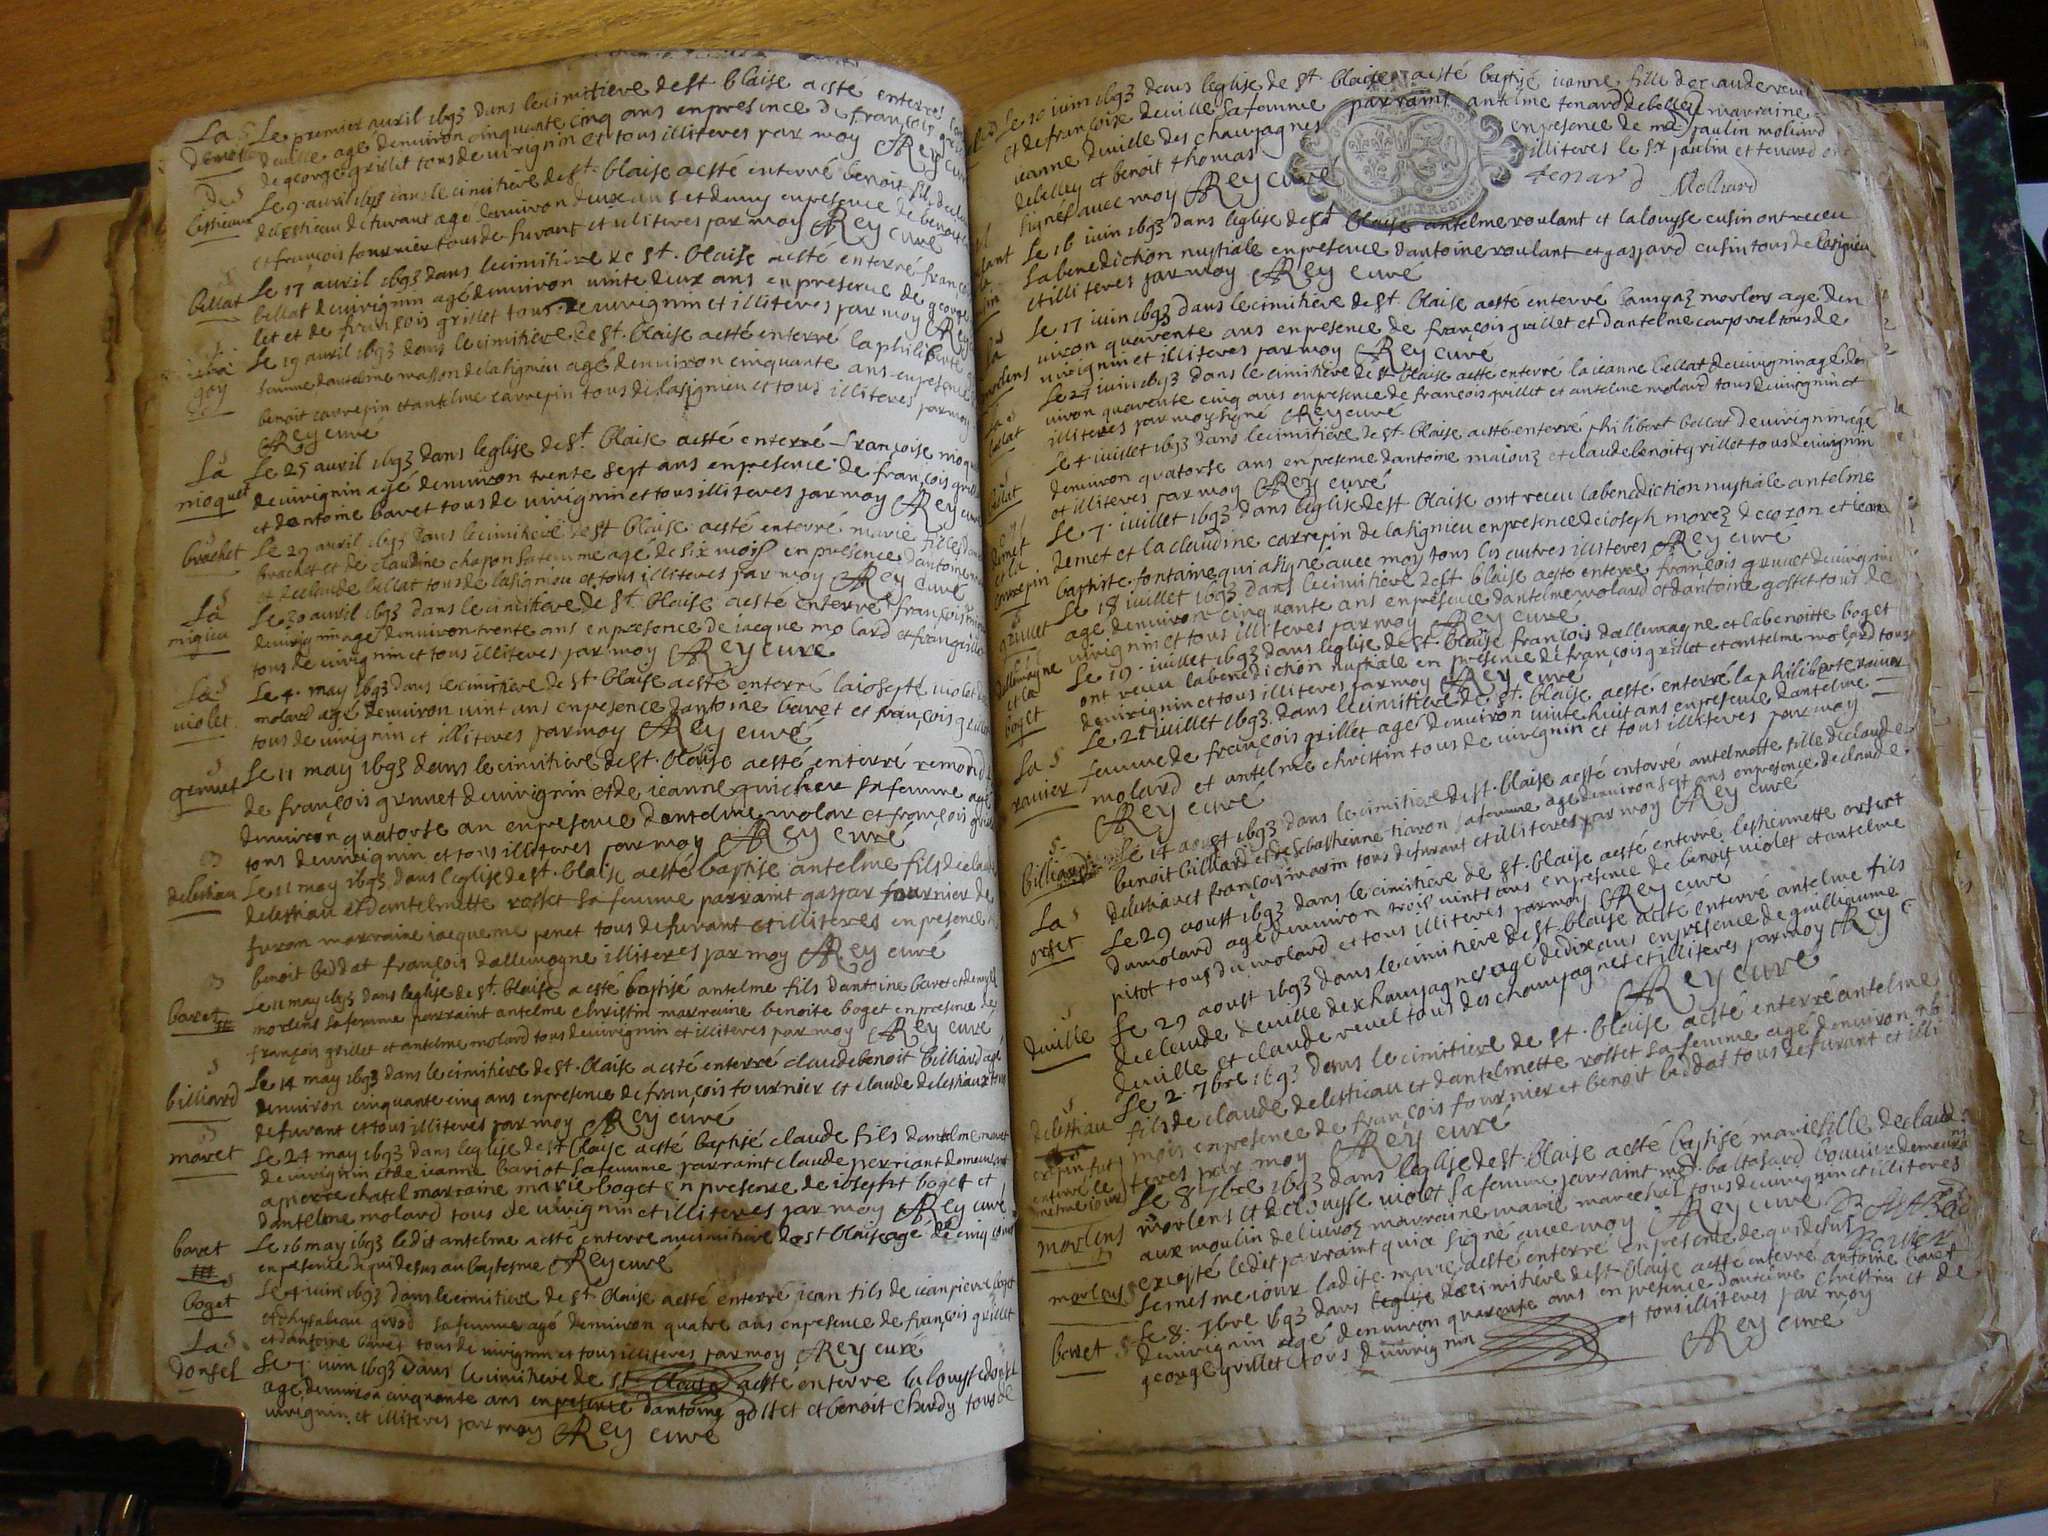 Le premier auril 1693 dans le cimitiere de st. blaise a esté enterré
deuille agé denuiron cinquante cinq ans en presence de françois
de george grillet tous de uirignin et tous illiteres par moy Rey curé
Le 9 auril 1693 dans le cimitiere de st. blaise a esté enterré benoit fils de
delestiau de furant agé denuiron deux ans et demy en presence de benoit
et françois fournier tous de furant et illiteres par moy Rey curé
billat
Le 17 auril 1693 dans le cimitiere de st. blaise a esté enterré
billat de uirignin agé denuiron uinte deux ans en presence de george
let et de françois grillet tous de uirignin et illiteres par moy Rey
goy
Le 19 auril 1693 dans le cimitiere de st. blaise a esté enterré la philiberte
femme dantelme masson de lasignieu agé denuiron cinquante ans en presence
benoit carrepin et antelme carrepin tous de lasignieu et tous illiteres par moy
Rey curé
La
mioquet
Le 25 auril 1693 dans leglise de st. blaise a esté enterré françoise
de uirignin agé denuiron trente sept ans en presence de françois
et dantoine baret tous de uirignin et tous illiteres par moy Rey curé
brachet
Le 29 auril 1693 dans le cimitiere de st blaise a esté enterré marie fille
brachet et de claudine chapon sa femme agé de six mois en presence dantoine
et de claude bellat tous de lasignieu et tous illiteres par moy Rey curé
La
migieu
Le 30 auril 1693 dans le cimitiere de st. blaise a esté enterré françoise
de uirignin agé denuiron trente ans en presence de iacque molard et
tous de uirignin et tous illiteres par moy Rey curé
La
uiolet
Le 4 may 1693 dans le cimitiere de st. blaise a esté enterré la iosepte uiolet
molard agé denuiron uint ans en presence dantoine baret et françois
tous de uirignin et illiteres par moy Rey curé
gruuet
Le 11 may 1693 dans le cimitiere de st. blaise a esté enterré remond
de françois gruuet de uirignin et de ieanne guicher sa femme agé
denuiron quatorse an en presence dantelme molar et françois
tous de uirignin et tous illiteres par moy Rey curé
delestiau
Le 11 may 1693 dans leglise de st. blaise a esté baptisé antelme fils de claude
delestiau et dantelmette rosset sa femme parraint gaspar fournier de
furan marraine iacqueme penet tous de furant et illiteres en presence
benoit beddat françois dallemogne illiteres par moy Rey curé
baret
Le 11 may 1693 dans leglise de st. blaise a esté baptisé antelme fils dantoine baret et
morlens sa femme parraint antelme christin marraine benoite boget en presence de
françois grillet et antelme molard tous de uirignin et illiteres par moy Rey curé
billiard
Le 14 may 1693 dans le cimitiere de st. blaise a esté enterré claude benoit billiard agé
denuiron cinquante cinq ans en presence de françois fournier et claude delestiau tous
de furant et tous illiteres par moy Rey curé
moret
Le 24 may 1693 dans leglise de st. blaise a esté baptisé claude fils dantelme moret
de uirignin et de ieanne bariot sa femme parraint claude perriant demeurant
a pierre chatel marraine marie boget en presence de iosepht boget et
dantelme molard tous de uirignin et illiteres par moy Rey curé
baret
Le 16 may 1693 ledit antelme a esté enterré au cimitiere de st blaise agé de cinq iours
en presence de qui desus au baptesme Rey curé
boget
Le 4 iuin 1693 dans le cimitiere de st. blaise a esté enterré iean fils de iean pierre boget
sa femme agé denuiron quatre ans en presence de françois grillet
et dantoine baret tous de uirignin et tous illiteres par moy Rey curé
La
donsel
Le iuin 1693 dans le cimitiere de st. blaise a esté enterré la louyse donsel
agé denuiron cinquante ans en presence dantoine gosset et benoit tous de
uirignin et illiteres par moy Rey curé
Le 10 iuin 1693 dans leglise de st. blaise a esté baptisé ieanne fille de claude reuel
et de françoise deuille sa femme parraint antelme tenard de belley marraine
ieanne deuille des champagnes en presence de paulin moliard
de belley et benoit thomas illiteres le sr paulin et tenard
signés auec moy Rey curé
tenard Molliard
Le 16 iuin 1693 dans leglise de st blaise antelme roulant et la louyse cusin ont receu
la benediction nuptiale en presence dantoine roulant et gaspard cusin tous de lasignieu
et illiteres par moy Rey curé
Le 17 iuin 1693 dans le cimitiere de st. blaise a esté enterré morlens agé den
uiron quarente ans en presence de françois grillet et dantelme carporal tous de
uirignin et illiteres par moy Rey curé
Le 27 iuin 1693 dans le cimitiere de st blaise a esté enterré la ieanne bellat de uirignin agé den
uiron quarente cinq ans en presence de françois grillet et antelme molard tous de uirignin et
illiteres par moy signé Rey curé
Le 4 iuillet 1693 dans le cimitiere de st. blaise a esté enterré philibert bellat de uirignin agé
denuiron quatorse ans en presence dantoine et claude benoit grillet tous de uirignin
et illiteres par moy Rey curé
demet
et la
carrepin
Le 7 iuillet 1693 dans leglise de st blaise ont receu la benediction nuptiale antelme
demet et la claudine carrepin de lasignieu en presence de ioseph morez de coron et iean
baptiste fontaine qui a signé auec moy tous les autres illiteres Rey curé
gruuet
Le 18 iuillet 1693 dans le cimitiere de st blaise a esté enterré françois gruuet de uirignin
agé denuiron cinquante ans en presence dantelme molard et dantoine gosset tous de
uirignin et tous illiteres par moy Rey curé
dallemagne
et la
boget
Le 19 iuillet 1693 dans leglise de st. blaise françois dallemagne et la benoitte boget
ont receu la benediction nuptiale en presence de françois grillet et antelme molard tous
de uirignin et tous illiteres par moy Rey curé
La
rauier
Le 21 iuillet 1693 dans le cimitiere de st. blaise a esté enterré la philiberte rauier
femme de françois grillet agé denuiron uinte huit ans en presence dantelme
molard et antelme christin tous de uirignin et tous illiteres par moy
Rey curé
billiard
Le 14 aoust 1693 dans le cimitiere de st. blaise a esté enterré antelmette fille de claude
benoit billiard et de sebastienne tiaron sa femme agé denuiron sept ans en presence de claude
delestiau et françois marin tous de furant et illiteres par moy Rey curé
La
orset
Le 29 aoust 1693 dans le cimitiere de st. blaise a esté enterré lestiennette orset
du molard agé denuiron trois uints ans en presence de benoit uiolet et antelme
pitot tous du molard et tous illiteres par moy Rey curé
deuille
Le 29 aoust 1693 dans le cimitiere de st blaise a esté enterré antelme fils
de claude deuille des champagnes agé de dix ans en presence de guilliaume
deuille et claude reuel tous des champagnes et illiteres par moy Rey c
Rey curé
delestiau
enterré le
mesme iour
Le 2 7bre 1693 dans le cimitiere de st. blaise a esté enterré antelme
fils de claude delestiau et dantelmette rosset sa femme agé denuiron
mois en presence de françois fournier et benoit beddat tous de furant et illi
teres par moy Rey curé
morlens
Le 8 7bre 1693 dans leglise de st. blaise a esté baptisé marie fille de claude
morlens et de louyse uiolet sa femme parraint balthasard bouuier demeurant
aux moulin de marraine marie marechal tous de uirignin et illiteres
excepte ledit parraint qui a signé auec moy Rey curé
Bouuier
morlens
Le mesme iour ladite marie a esté enterré en presence de qui desus
beret
Le 8 7bre 1693 dans leglise le cimitiere de st. blaise a esté enterré antoine baret
de uirignin agé denuiron quarente ans en presence dantelme christin et de
george grillet tous de uirignin et tous illiteres par moy
Rey curé